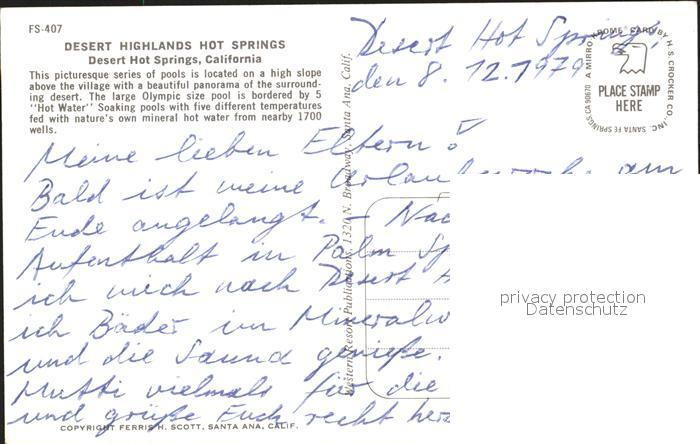 FS-407
DESERT HIGHLANDS HOT SPRINGS
Desert Hot Springs, California
This picturesque series of pools is located on a high slope
above the village with a beautiful panorama of the surround-
ing desert. The large Olympic size pool is bordered by 5
"Hot Water" Soaking pools with five different temperatures
fed with nature's own mineral hot water from nearby 1700
wells.
Desert Hot Springs,
den 8. 12. 1979
A MIRRO-KROME CARD BY H. S. CROCKER CO., INC. SANTA FE SPRINGS, CA 90670
PLACE STAMP
HERE
Meine lieben Eltern!
Bald ist meine am
Ende angelangt. –
Aufenthalt in Palm
ich mich nach Desert
ich Bäder im
und die Sauna genieße.
Mutti vielmals für die
und grüße Euch recht
Western Resort Publications, 1320 N. Broadway, Santa Ana, Calif.
privacy protection
Datenschutz
COPYRIGHT FERRIS H. SCOTT, SANTA ANA, CALIF.